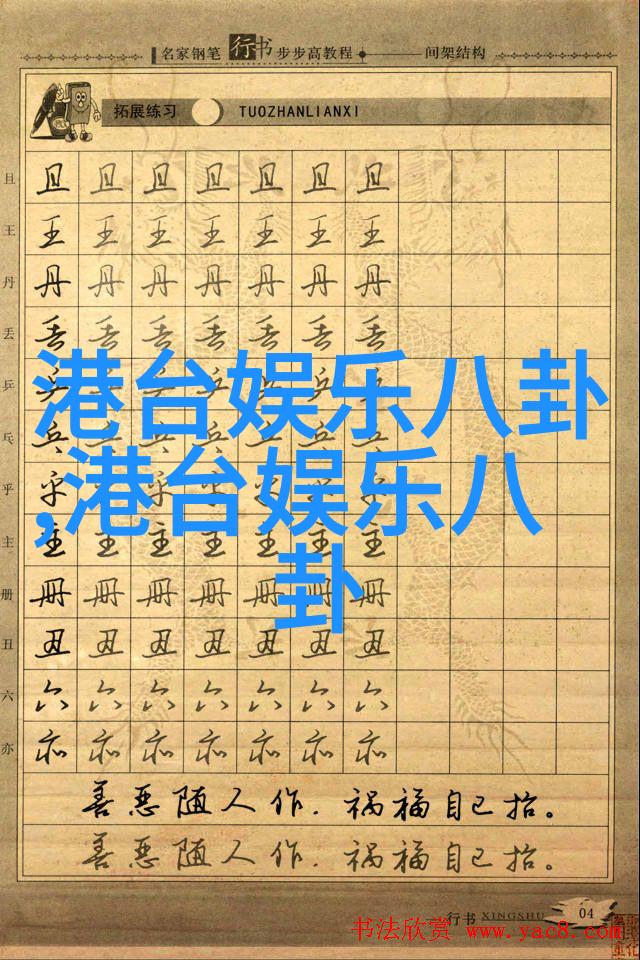 名家钢笔行书步步高教程 间架结构
拓展练习 TUOZHANLIANXI
且 且 且 且 且 且 且 且
王 王 王 王 王 王 王 王
丹 丹 丹 丹 丹 丹 丹 丹
丢 丢 丢 丢 丢 丢 丢 丢
港台娱乐八卦
乒 乒 乒 乒 乒 乒 乒 乒
乓 乓 乓 乓 乓 乓 乓 乓
,港台娱乐八
乎 乎 乎 乎 乎 乎 乎 乎
主 主 主 主 主 主 主 主
卦
册 册 册 册 册 册 册 册
丑 丑 丑 丑 丑 丑 丑 丑
六 六 六 六 六 六 六 六
亦 亦 亦 亦 亦 亦 亦 亦
善恶随人作,祸福自己招。
善恶随人作,祸福自己招。
行书 XINGSHU 04
书法欣赏 www.yac8.com